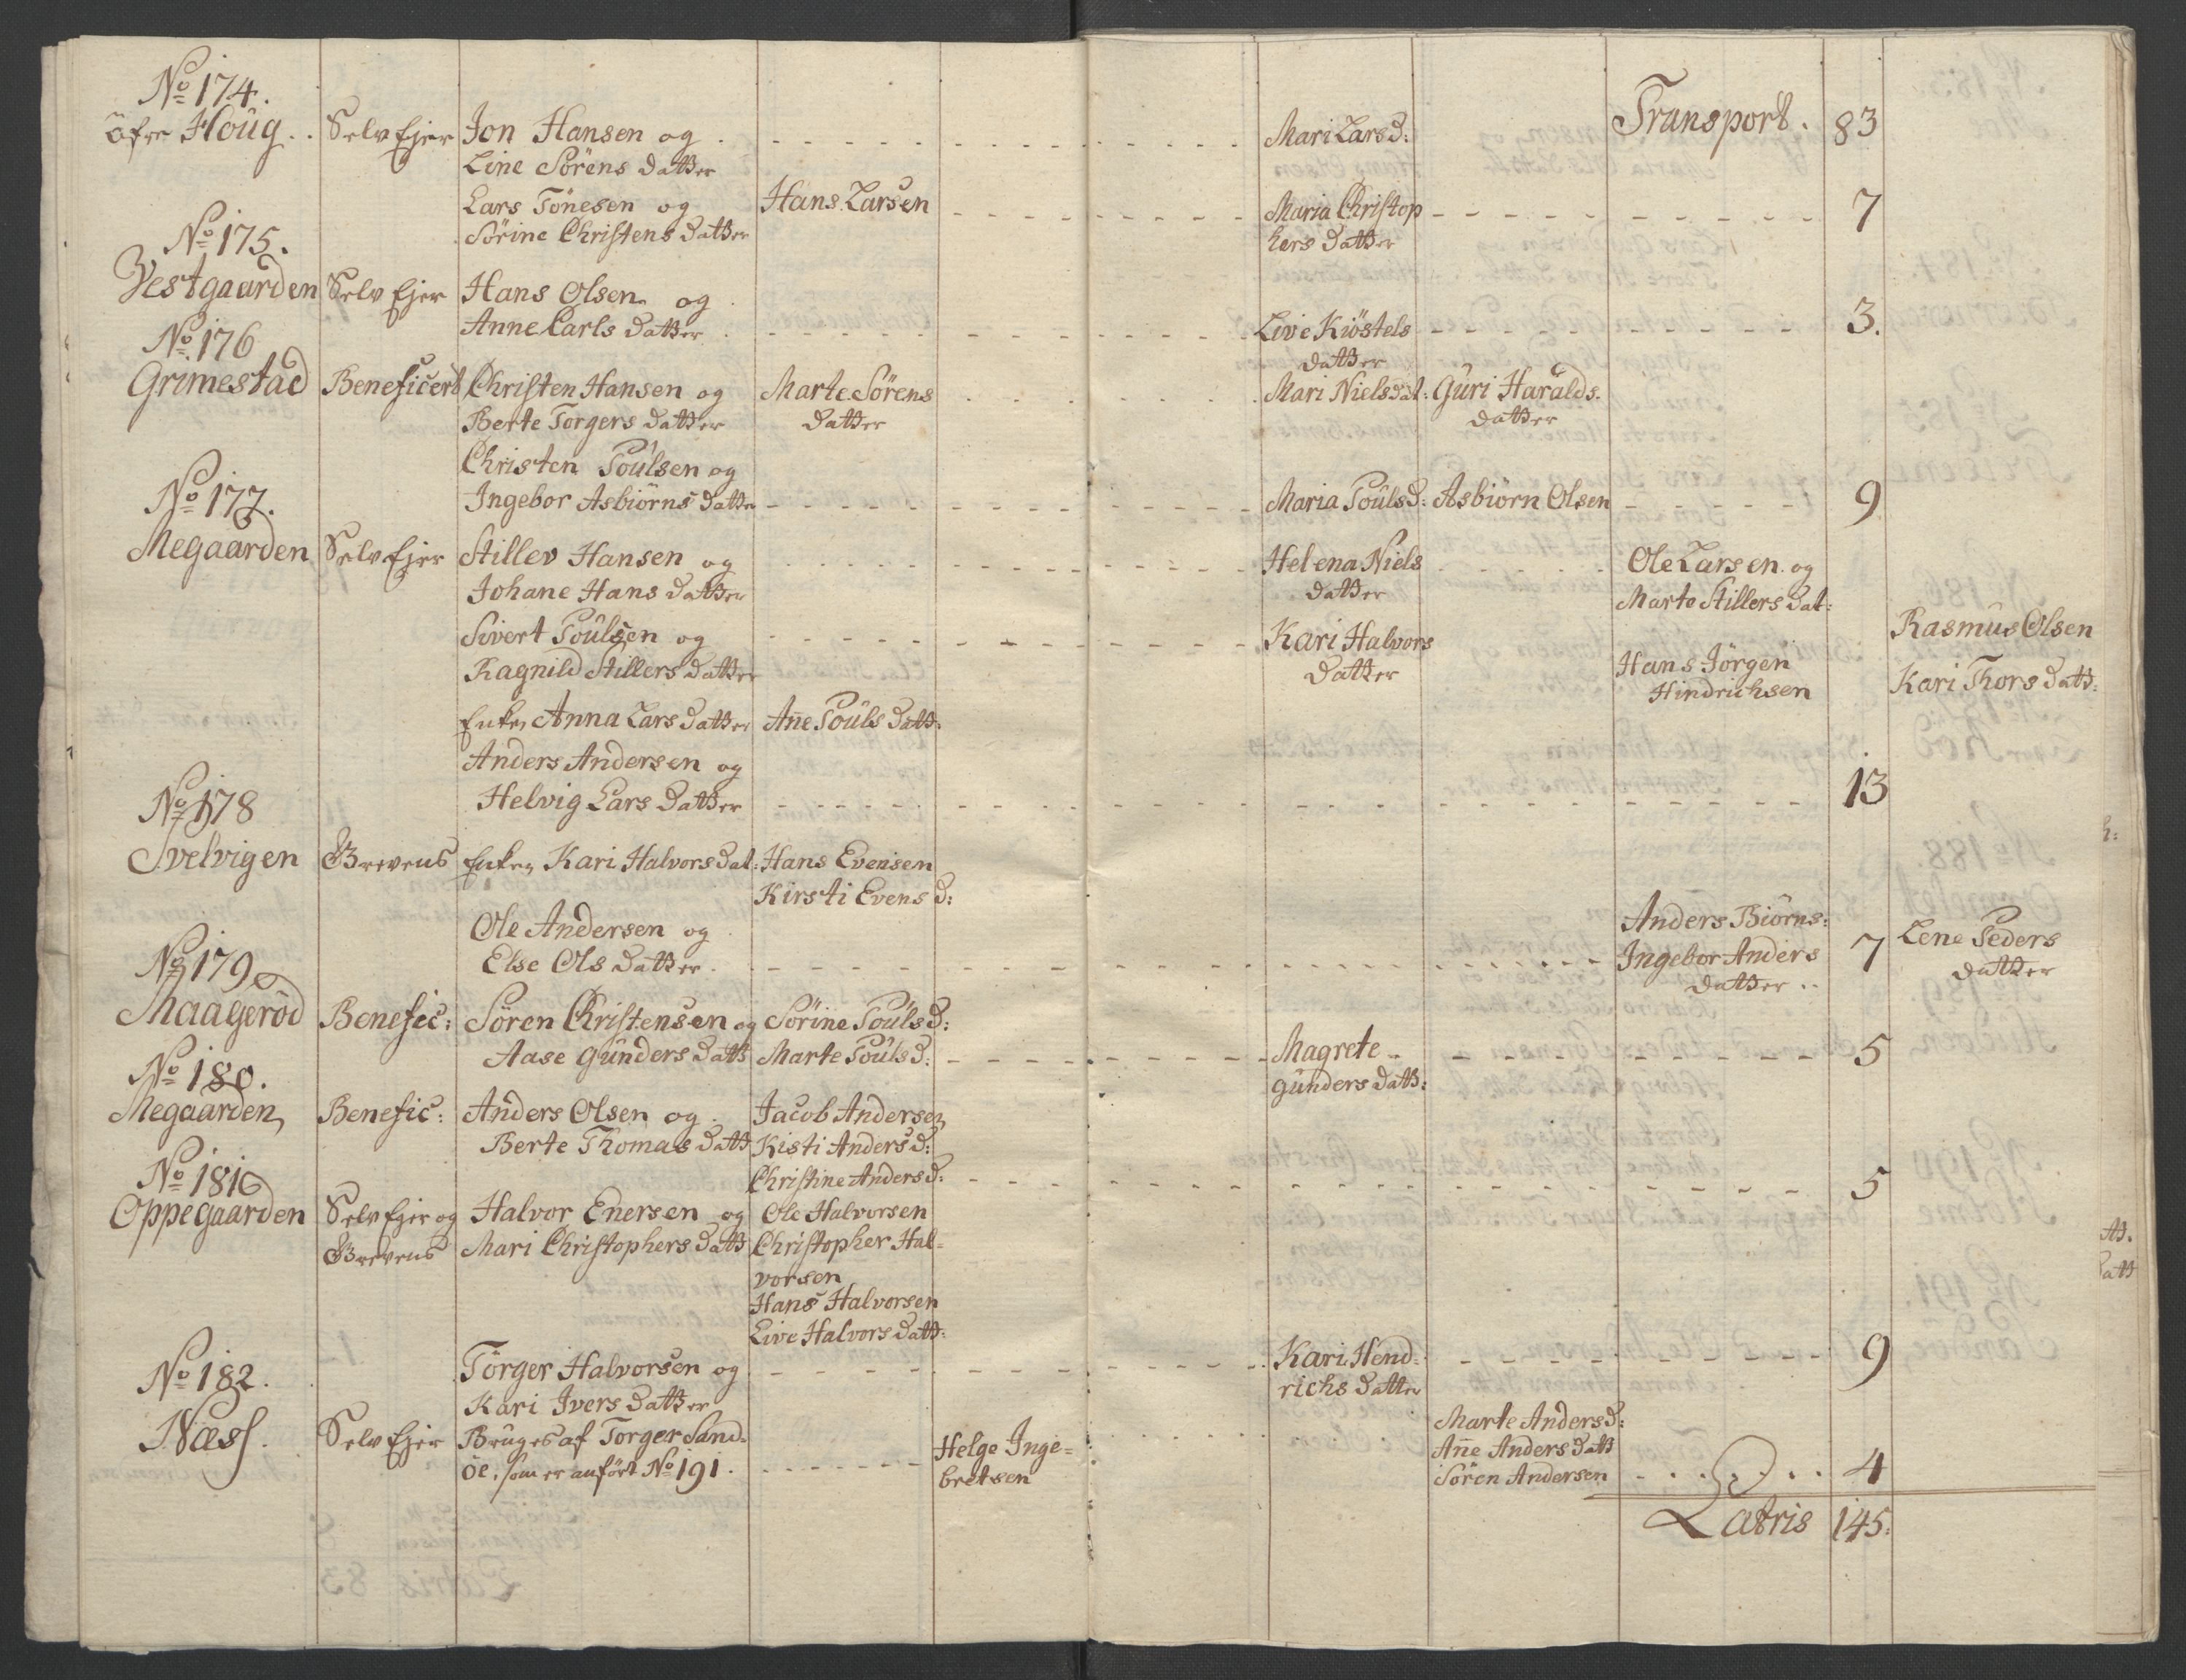 Transport. 83
No 174.
öfre Houg. Selv Ejer Jon Hansen og Mari Larsd:
Line Sörens datter
Lars Tönesen og Hans Larsen Maria Christop 7
Sörine Christens datter hers datter
No 175.
Vestgaarden Selv Ejer Hans Olsen og
Anne Carls datter Live Kiöstels 3.
datter
No 176
Grimestad Beneficert Christen Hansen og Marte Sörens Mari Nielsdat: Guri Haralds.
Berte Torgers datter datter datter
Christen Poulsen og
Ingebor Asbiörns datter Maria Poulsd: Asbiörn Olsen 9
No 177.
Megaarden Selv Ejer Stillev Hansen og Helena Niels Ole Larsen og
Johane Hans datter datter Marte Stillers dat:
Sivert Poulsen og Kari Halvors Rasmus Olsen
Ragnild Stillers datter datter Hans Jörgen Kari Thors datt:
Hindrichsen
Enken Anna Lars datter Ane Pouls datt:
Anders Andersen og
Helvig Lars datter 13
No 178
Svelvigen Grevens Enken Kari Halvors dat: Hans Evensen
Kirsti Evens d:
Ole Andersen og Anders Biörns: Lene Peders
Else Ols datter Ingebor Anders 7 datter
datter
No 179
Maageröd Benefic: Sören Christensen og Sörine Pouls d:
Aase Gunders datt Marte Pouls d: Magrete 5
Gunders datt:
No 180.
Megaarden Benefic: Anders Olsen og Jacob Andersen
Berte Thomas datt Kisti Anders d:
Christine Anders d: 5
No 181
Oppegaarden Selv Ejer og Halvor Enersen og Ole Halvorsen
Grevens Mari Christophers datt Christopher Hal-
vorsen
Hans Halvorsen
Live Halvors datt:
Törger Halvorsen og Kari Hend- 9
Kari Ivers datter richs datter
No 182.
Næss. Selv Ejer Bruges af Torger Sand- Helge Inge- Marte Anders d:
öe, som er anfört No 191. bretsen Ane Anders datt
Sören Andersen 4
Latris 145.